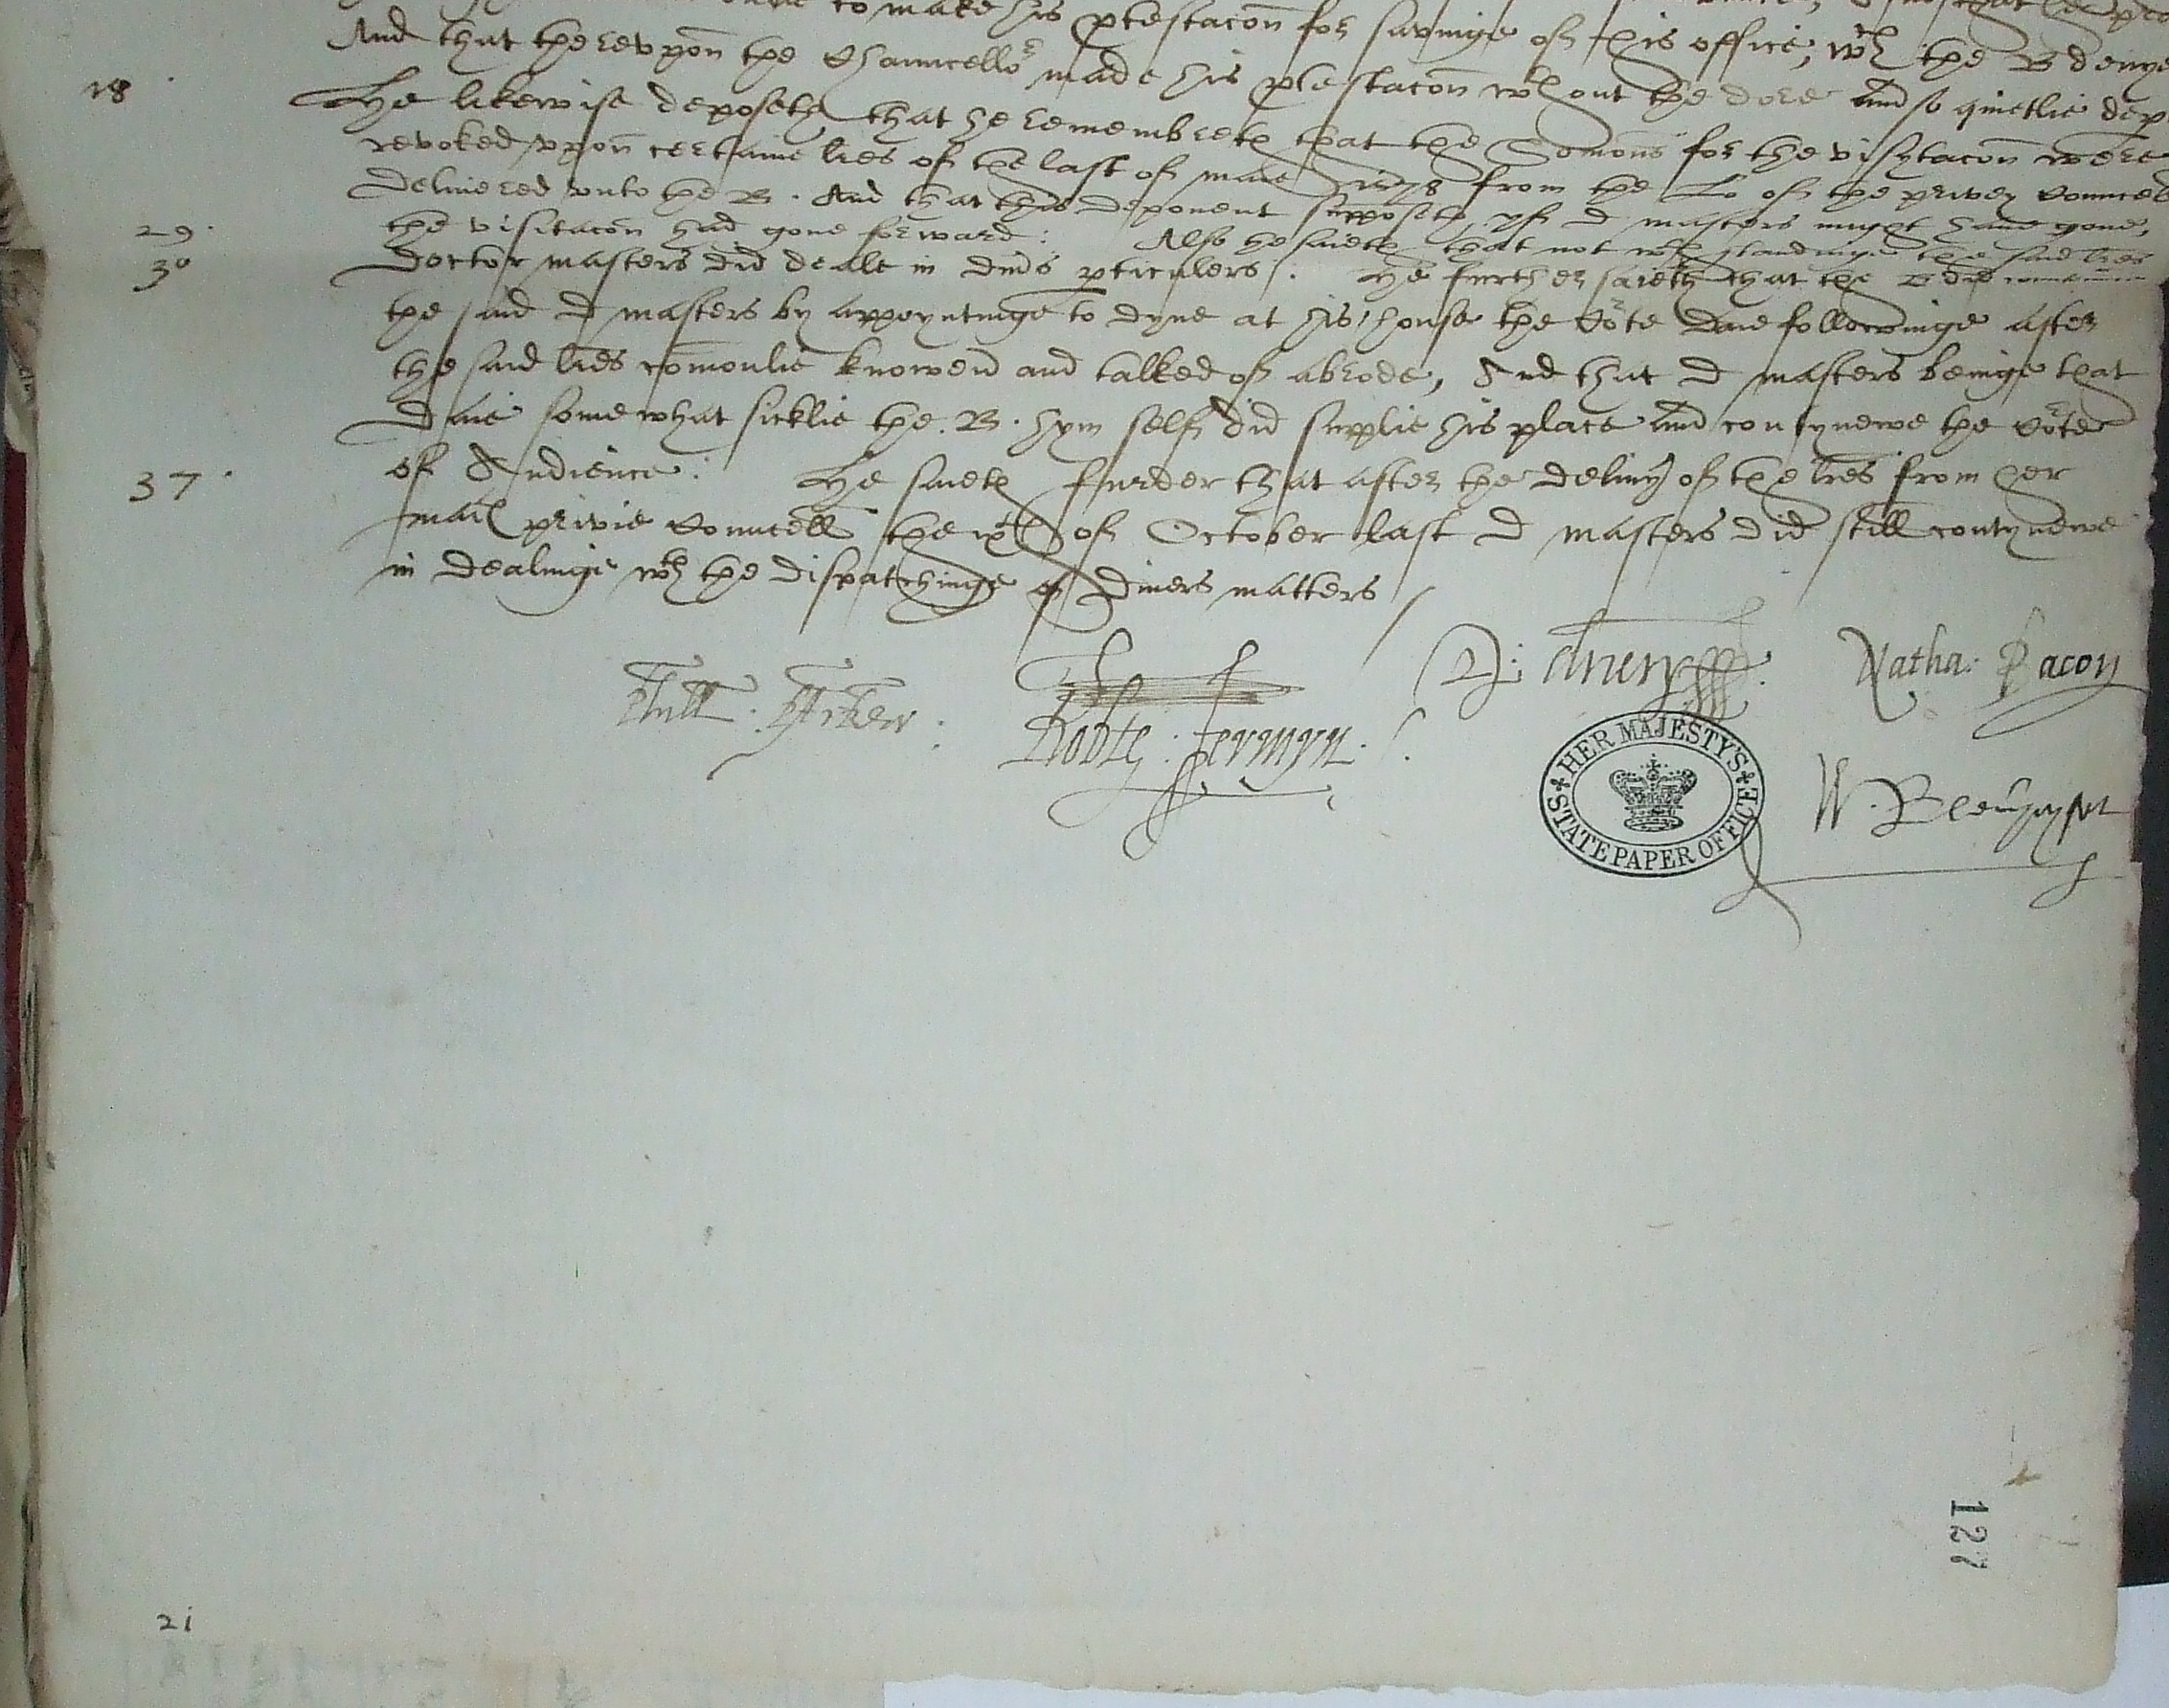 to make his ptestacon for savinge of his office, wch the B denye
And that therevpon the Chauncellor made his ptestacon wthout the dore And so quietlie dep
18 He likewise deposeth that he remembreth that the Somons for the visytacon were
revoked vpon certaine lres of the last of maie 1578 from the Lo of the privey Councell
delivered vnto the B. And that this deponent supposeth, yf D masters might have gone,
29. the visitacon had gone forward: Also he saieth that not wthstandinge the said lres
30 doctor masters did deale in divs pticulers /. He further saieth that the B did
the said D masters by appoyntinge to dyne at his house the Corte daie followinge after
the said lres comonlie knowen and talked of abrode, And that D masters beinge that
daie somewhat sicklie the .B. hym self did supplie his place And contynewe the Corte
of Audience:
37. He saieth furder that after the delivy of the lres from her
maty privie Councell the of October last D masters did still contynewe
in dealinge wth the dispatchinge of divers matters /
Robte: Jermyn.
Natha: Bacon
W. Blenhayset
HER MAJESTY'S
STATE PAPER OFFICE
127
21